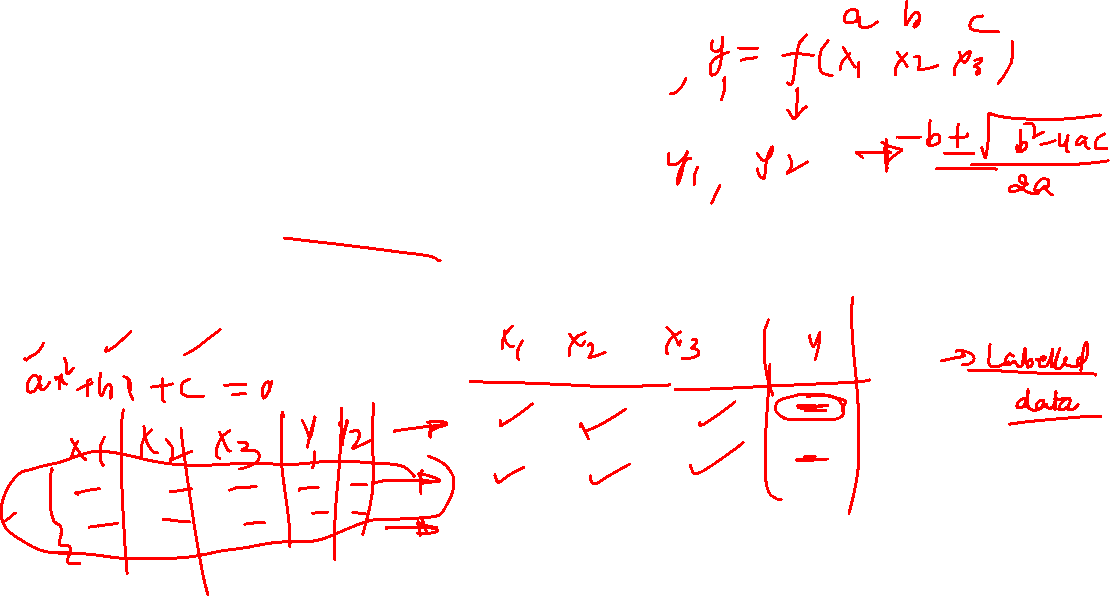 a b c
, y = f(x1 x2 x3)
↓
y1, y2 → -b ± √b²-4ac
2a
ax²+bx+c = 0
x1 x2 x3 y1 y2 →
x1 x2 x3 y
→ Labelled
data